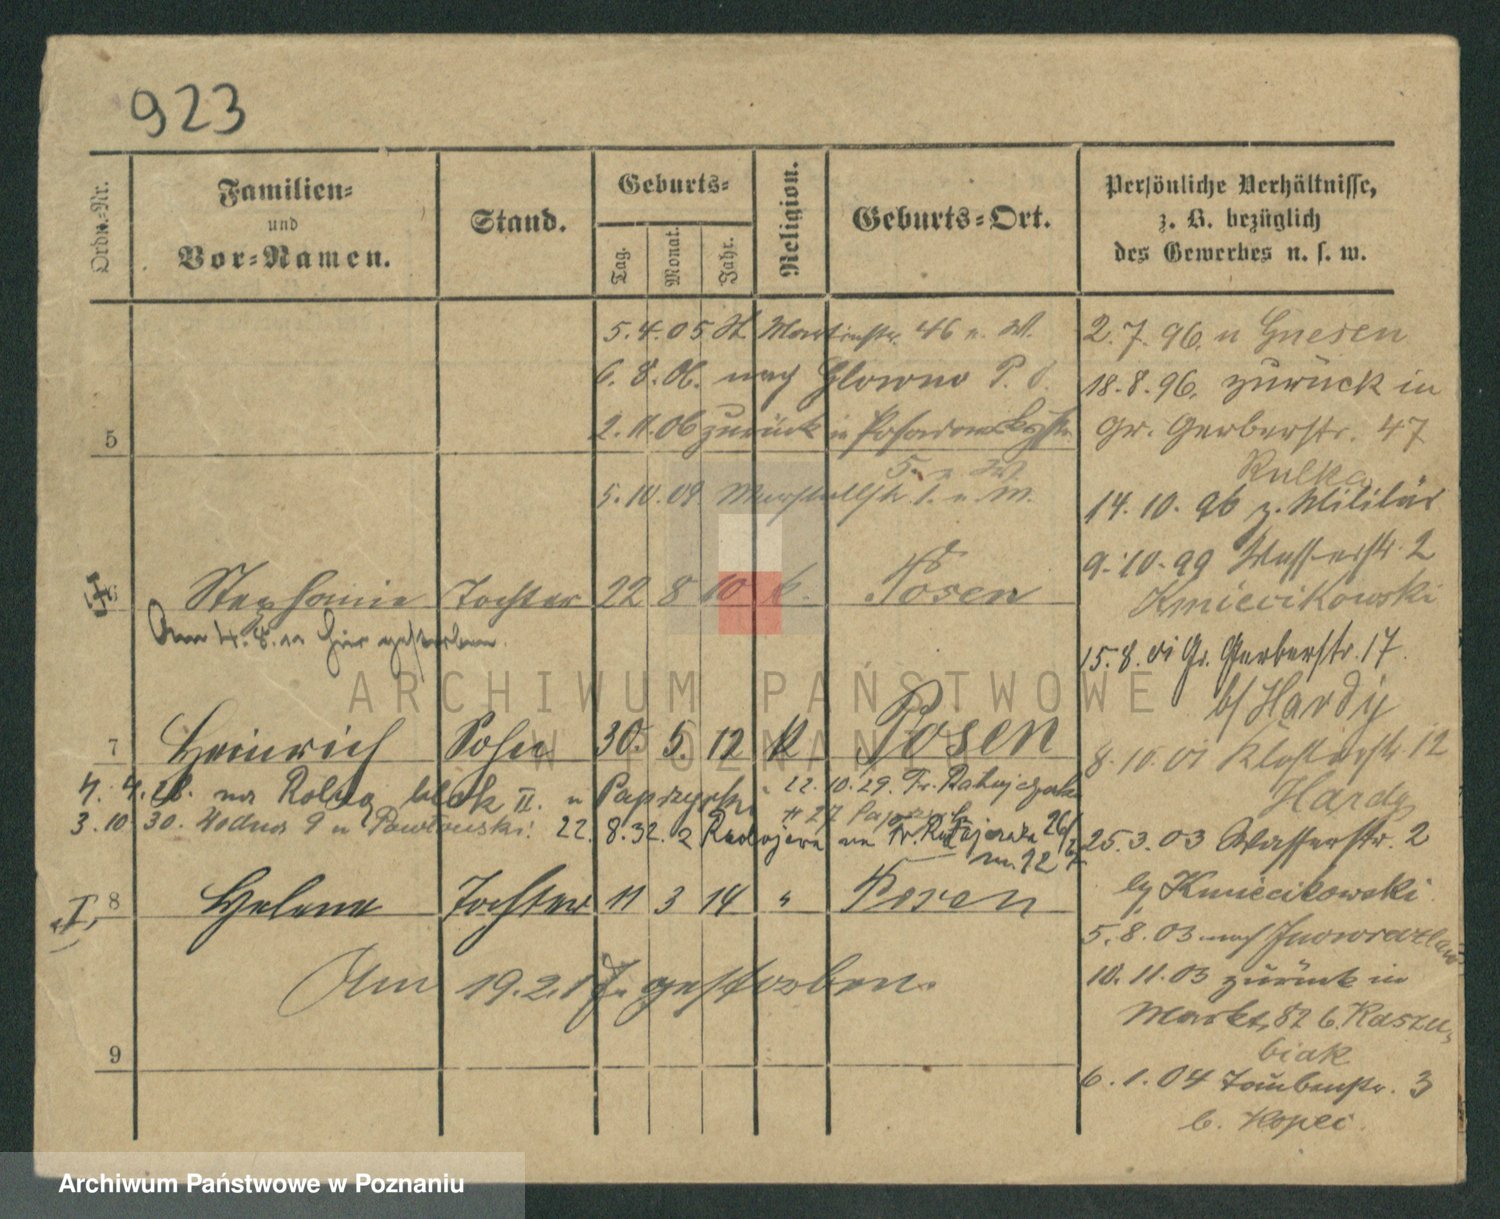 923
Ordn.-Nr.
Familien-
und
Vor-Namen.
Stand.
Geburts-
Tag.
Monat.
Jahr.
Religion.
Geburts-Ort.
Persönliche Verhältnisse,
z. B. bezüglich
des Gewerbes u. s. w.
5.4.05 St. Martinstr. 46 u. W.
6.8.06. nach Glowno P. O.
2.11.06 zurück in Posadowskystr.
5. u. W.
5
5.10.09 Marstallstr 1. u. W.
6 Stephanie Tochter 22 8 10 k. Posen
Am 4.8.11 hier gestorben.
7 Heinrich Sohn 30. 5. 12 k Posen
4. 4.28. na Rolną blok II. u Paprzycki 22.10.29. Fr. Ratajczaka
# 27
3.10.30. Wodna 9 u Pawłowski. 22.8.32. z Radojewa na Fr. Ratajczaka 26/27
m. 12
8 Helene Tochter 11 3 14 " Posen
Am 19.2.17. gestorben.
9
2.7.96. n Gnesen
18.8.96. zurück in
Gr. Gerberstr. 47
Kulka
14.10.96 z. Militär
9.10.99 Wasserstr. 2
Kmiecikowski
15.8.01 Gr. Gerberstr. 17.
b/ Hardy
8.10.01 Klosterstr. 12
Hardy
25.3.03 Wasserstr. 2
by Kmiecikowski.
5.8.03 nach Inowrazlaw
10.11.03 zurück in
Markt, 82 b. Kaszu-
biak
6.1.04 Taubenstr. 3
b. Kopeć.
ARCHIWUM PAŃSTWOWE
W POZNANIU
Archiwum Państwowe w Poznaniu